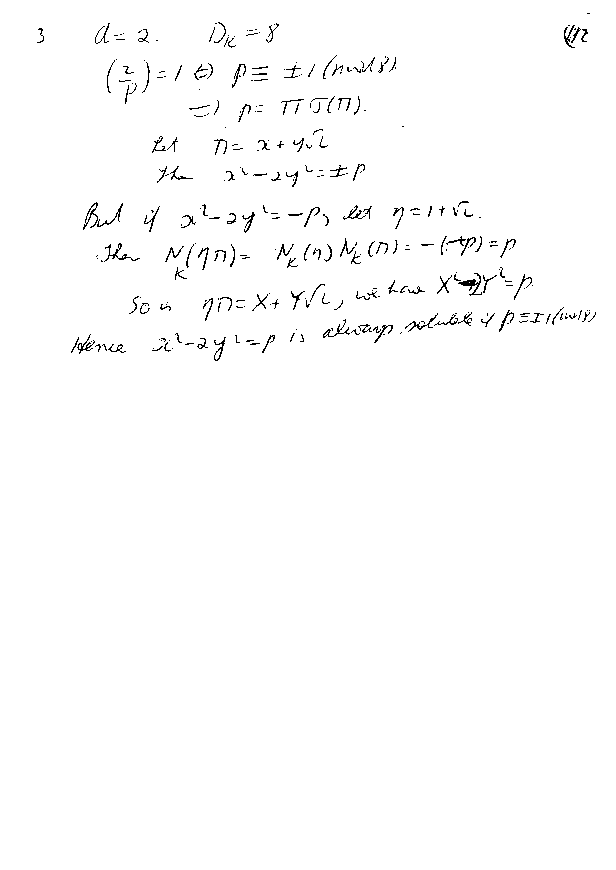 3 d = 2. D_K = 8
(2/p) = 1 ⇔ p ≡ ±1 (mod 8)
⇒ p = π σ(π).
Let π = x + y√2
Then x² - 2y² = ±p
But if x² - 2y² = -p, let η = 1 + √2.
Then N_K(ηπ) = N_K(η) N_K(π) = -(-p) = p
So if ηπ = X + Y√2, we have X² - 2Y² = p
Hence x² - 2y² = p is always soluble if p ≡ ±1 (mod 8)